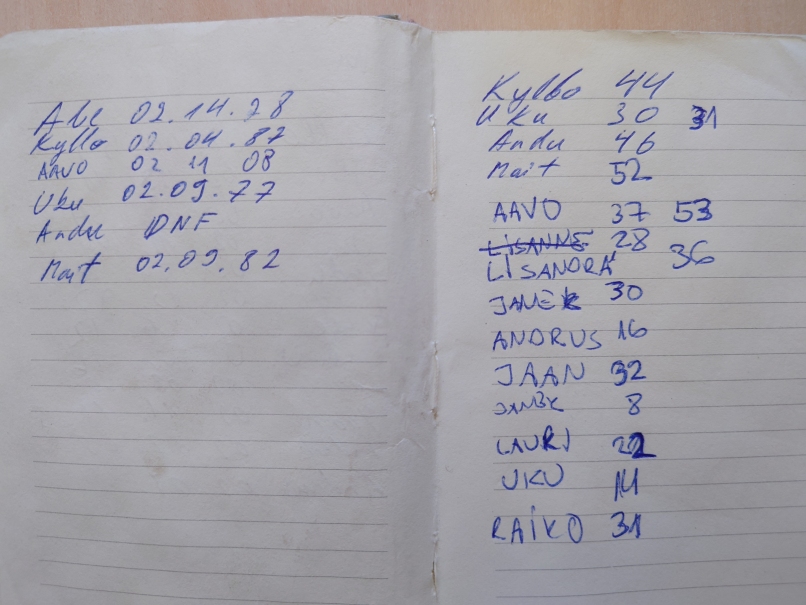 Abe 02.14.78
Kyllo 02.04.87
AAVO 02 11 08
Uku 02.09.77
Andu DNF
Mait 02.09.82
Kylbo 44
Uku 30 31
Andu 46
Mait 52
AAVO 37 53
LISANNE 28
LISANDRA 36
JANEK 30
ANDRUS 16
JAAN 32
JANEK 8
LAURI 22
UKU 14
RAIKO 31